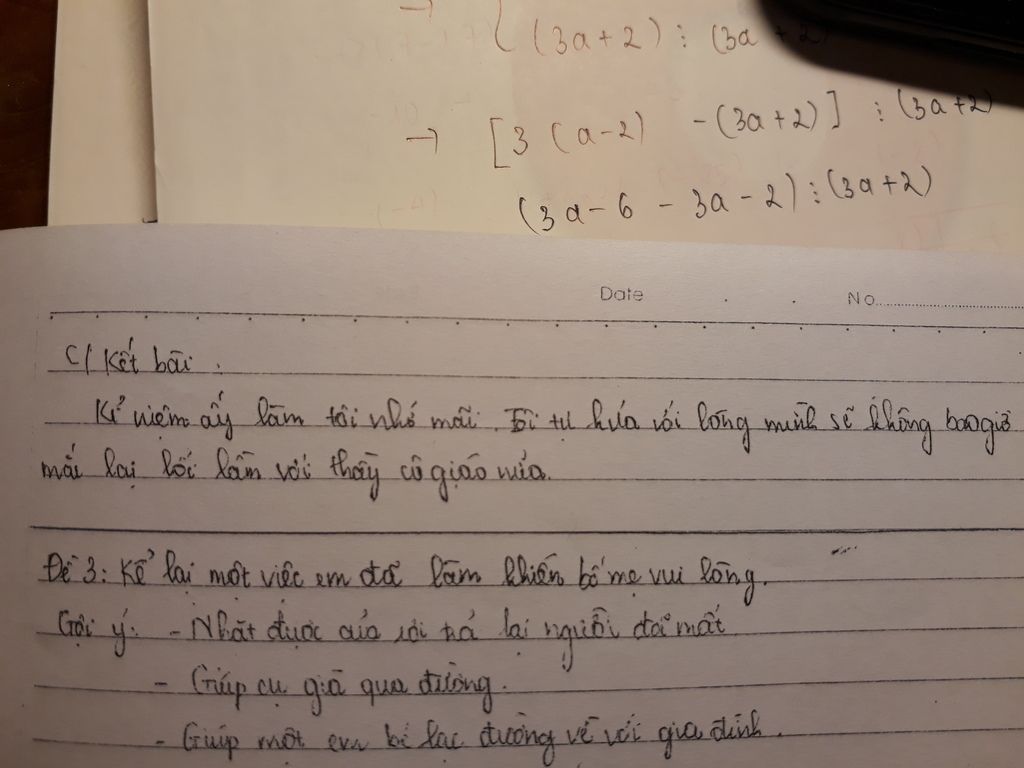 → { (3a+2) ⋮ (3a + 2)
→ [3 (a-2) - (3a+2)] ⋮ (3a+2)
(3a - 6 - 3a - 2) ⋮ (3a+2)
Date . . No
C/ Kết bài :
Kỉ niệm ấy làm tôi nhớ mãi. Tôi tự hứa với lòng mình sẽ không bao giờ
mắc lại lỗi lầm với thầy cô giáo nữa.
Đề 3: Kể lại một việc em đã làm khiến bố mẹ vui lòng.
Gợi ý: - Nhặt được của rơi trả lại người đã mất
- Giúp cụ già qua đường.
- Giúp một em bé lạc đường về với gia đình.